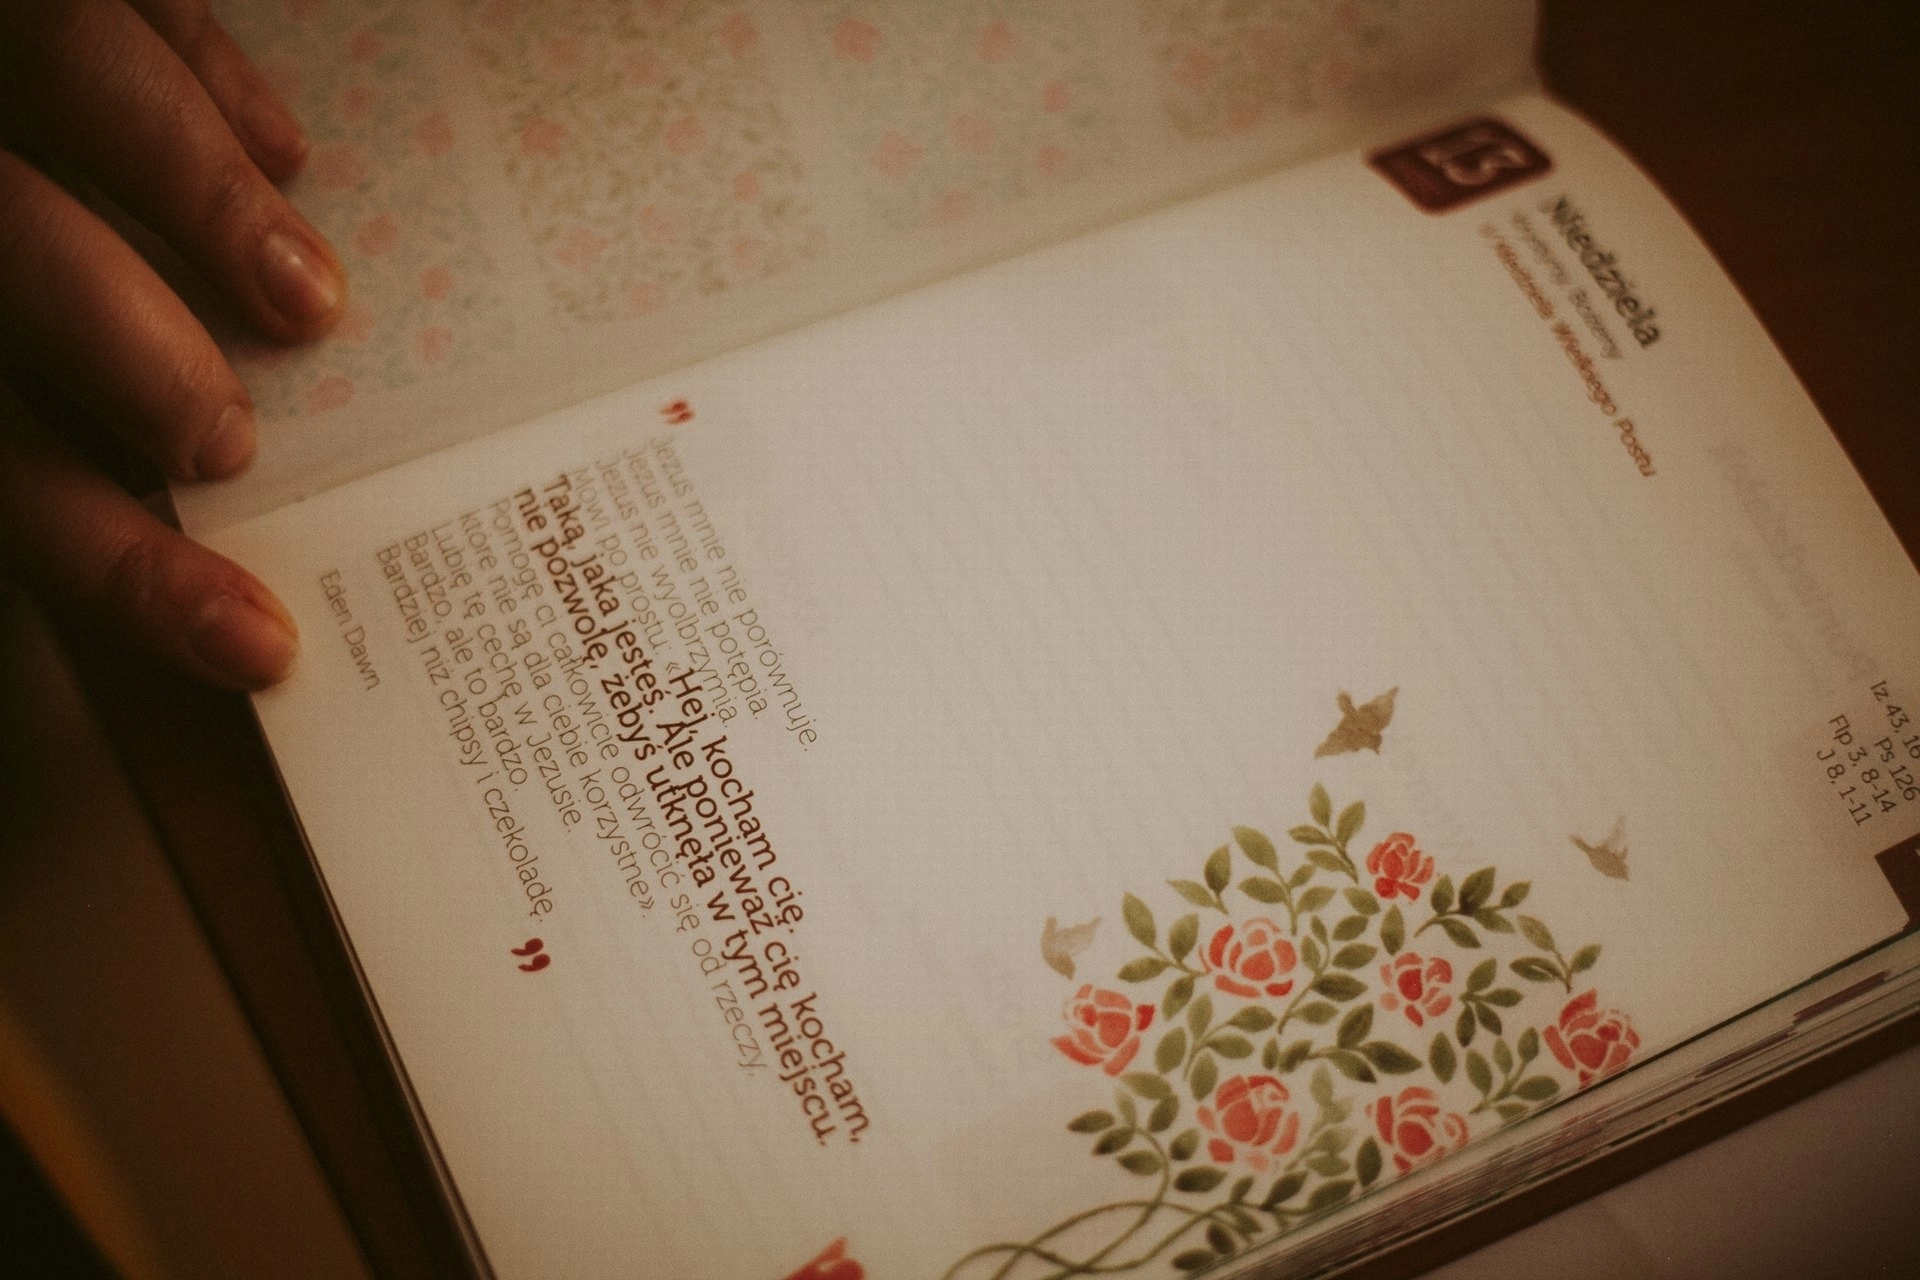 13
Niedziela
Krystyny, Bożeny
V Niedziela Wielkiego Postu
Iz 43, 16
Ps 126
Flp 3, 8-14
J 8, 1-11
”
Jezus mnie nie porównuje.
Jezus mnie nie potępia.
Jezus nie wyolbrzymia.
Mówi po prostu: «Hej, kocham cię.
Taką, jaką jesteś. Ale ponieważ cię kocham,
nie pozwolę, żebyś utknęła w tym miejscu.
Pomogę ci całkowicie odwrócić się od rzeczy,
które nie są dla ciebie korzystne».
Lubię tę cechę w Jezusie.
Bardzo, ale to bardzo.
Bardziej niż chipsy i czekoladę.
”
Eden Dawn